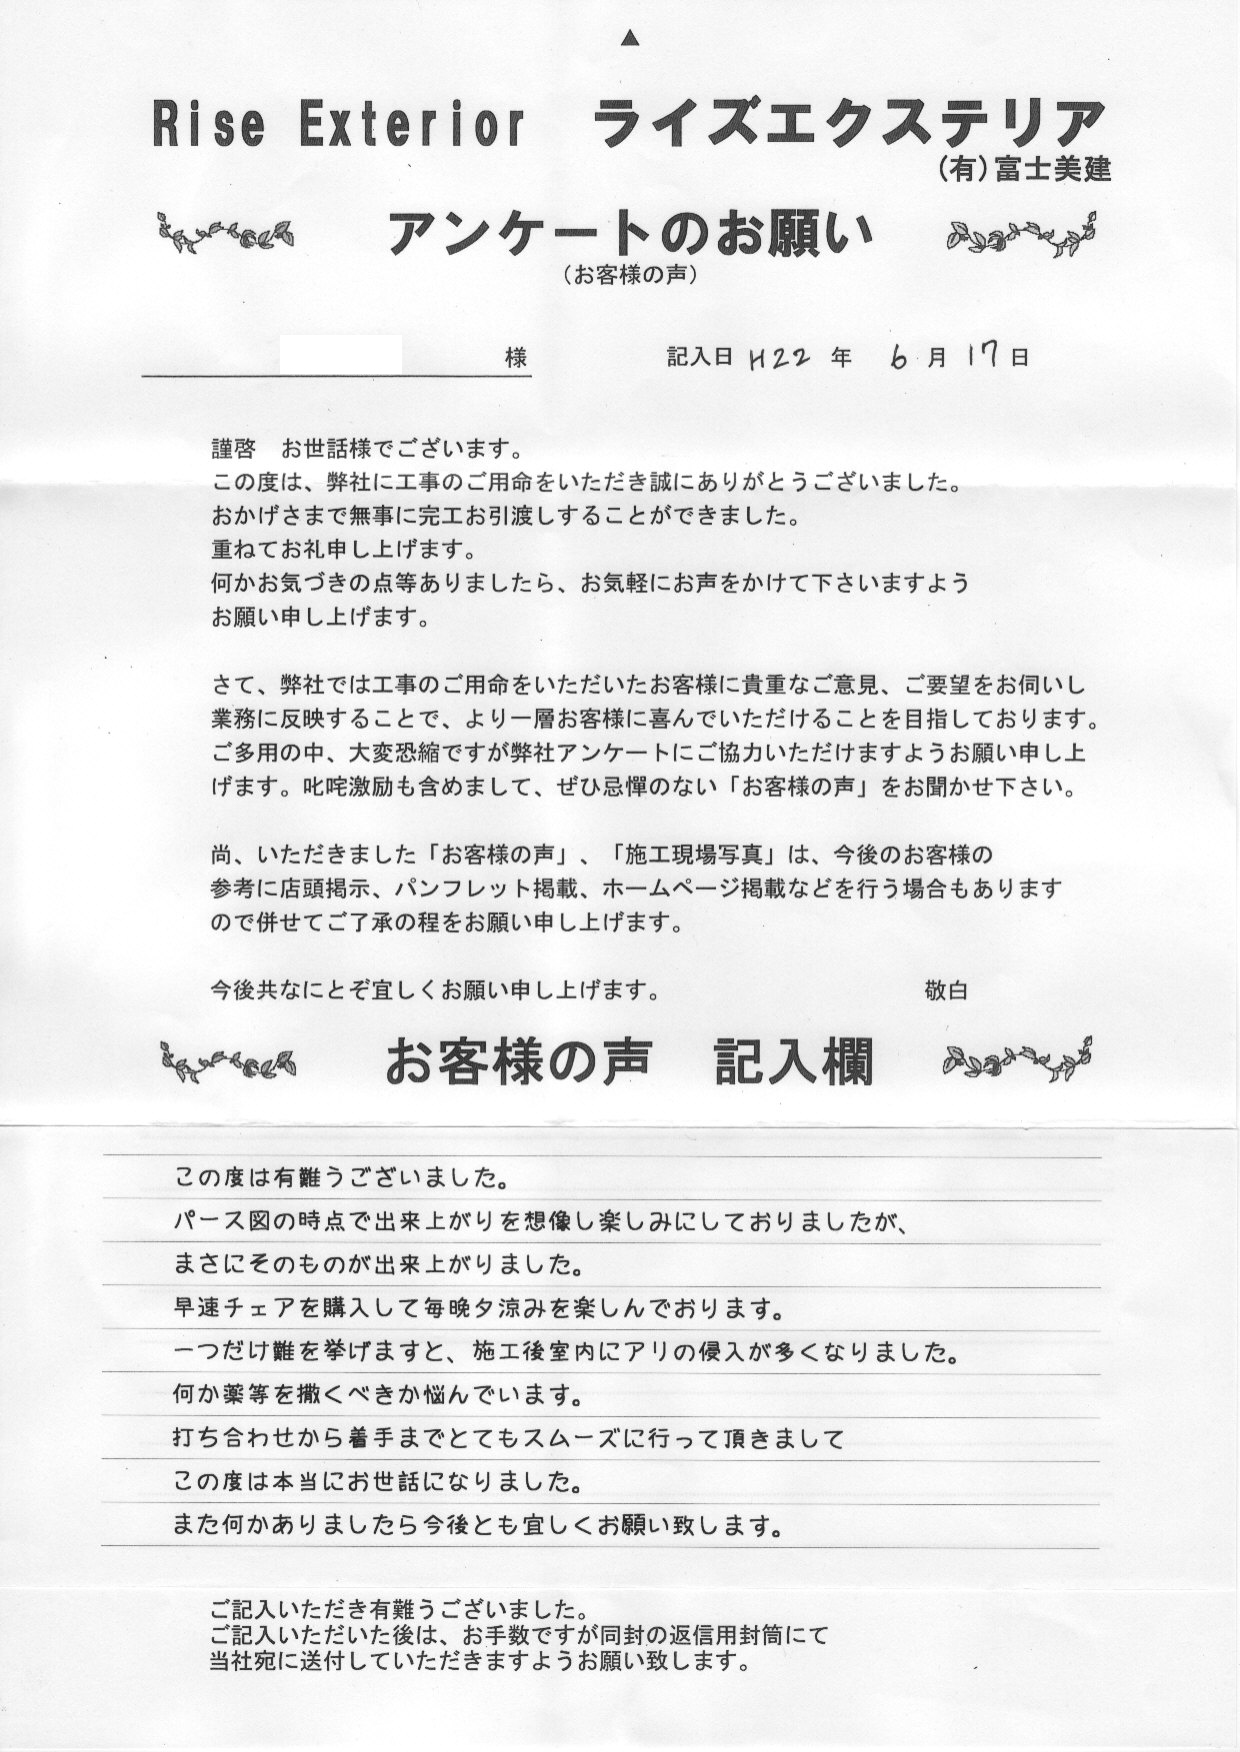 ▲
Rise Exterior　ライズエクステリア
（有）富士美建
アンケートのお願い
（お客様の声）
様　記入日 H22 年 6 月 17 日
謹啓　お世話様でございます。
この度は、弊社に工事のご用命をいただき誠にありがとうございました。
おかげさまで無事に完工お引渡しすることができました。
重ねてお礼申し上げます。
何かお気づきの点等ありましたら、お気軽にお声をかけて下さいますよう
お願い申し上げます。
さて、弊社では工事のご用命をいただいたお客様に貴重なご意見、ご要望をお伺いし
業務に反映することで、より一層お客様に喜んでいただけることを目指しております。
ご多用の中、大変恐縮ですが弊社アンケートにご協力いただけますようお願い申し上
げます。叱咤激励も含めまして、ぜひ忌憚のない「お客様の声」をお聞かせ下さい。
尚、いただきました「お客様の声」、「施工現場写真」は、今後のお客様の
参考に店頭掲示、パンフレット掲載、ホームページ掲載などを行う場合もあります
ので併せてご了承の程をお願い申し上げます。
今後共なにとぞ宜しくお願い申し上げます。　敬白
お客様の声　記入欄
この度は有難うございました。
パース図の時点で出来上がりを想像し楽しみにしておりましたが、
まさにそのものが出来上がりました。
早速チェアを購入して毎晩夕涼みを楽しんでおります。
一つだけ難を挙げますと、施工後室内にアリの侵入が多くなりました。
何か薬等を撒くべきか悩んでいます。
打ち合わせから着手までとてもスムーズに行って頂きまして
この度は本当にお世話になりました。
また何かありましたら今後とも宜しくお願い致します。
ご記入いただき有難うございました。
ご記入いただいた後は、お手数ですが同封の返信用封筒にて
当社宛に送付していただきますようお願い致します。